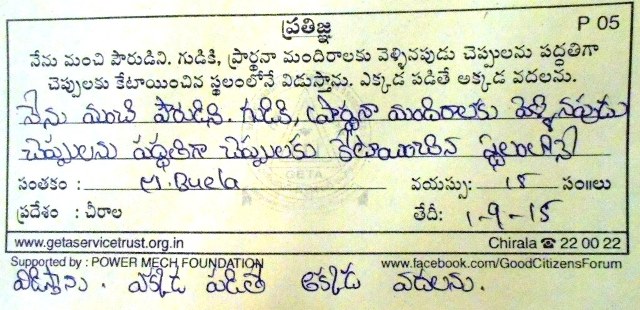 ప్రతిజ్ఞ P 05
నేను మంచి పౌరుడిని. గుడికి, ప్రార్థనా మందిరాలకు వెళ్ళినపుడు చెప్పులను పద్ధతిగా
చెప్పులకు కేటాయించిన స్థలంలోనే విడుస్తాను. ఎక్కడ పడితే అక్కడ వదలను.
నేను మంచి పౌరుడిని. గుడికి, ప్రార్థనా మందిరాలకు వెళ్ళినపుడు
చెప్పులను పద్ధతిగా చెప్పులకు కేటాయించిన స్థలంలోనే
సంతకం : M. Buela వయస్సు: 15 సం॥లు
ప్రదేశం : చీరాల తేదీ: 1-9-15
www.getaservicetrust.org.in Chirala ☎ 22 00 22
Supported by : POWER MECH FOUNDATION www.facebook.com/GoodCitizensForum
విడిస్తాను. ఎక్కడ పడితే అక్కడ వదలను.